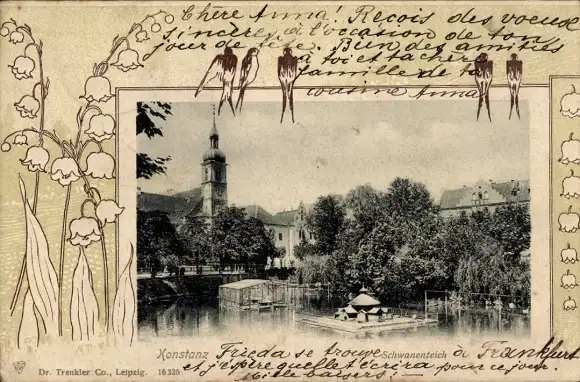 Chère Anna! Reçois des voeux
sincères à l'occasion de ton
jour de fête. Bien des amitiés
à toi et ta chère
famille de ta
cousine Anna
Konstanz
Schwanenteich
Frieda se trouve à Frankfurt
et j'espère qu'elle t'écrira pour ce jour.
Mille baisers!
Dr. Trenkler Co., Leipzig. 16 326